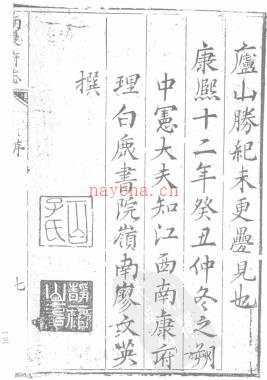 廬山勝紀末更疊見也
康熙十二年癸丑仲冬之朔
中憲大夫知江西南康府
理白鹿書院嶺南廖文英
撰
南康府志
序
七
nayona.cn
一三